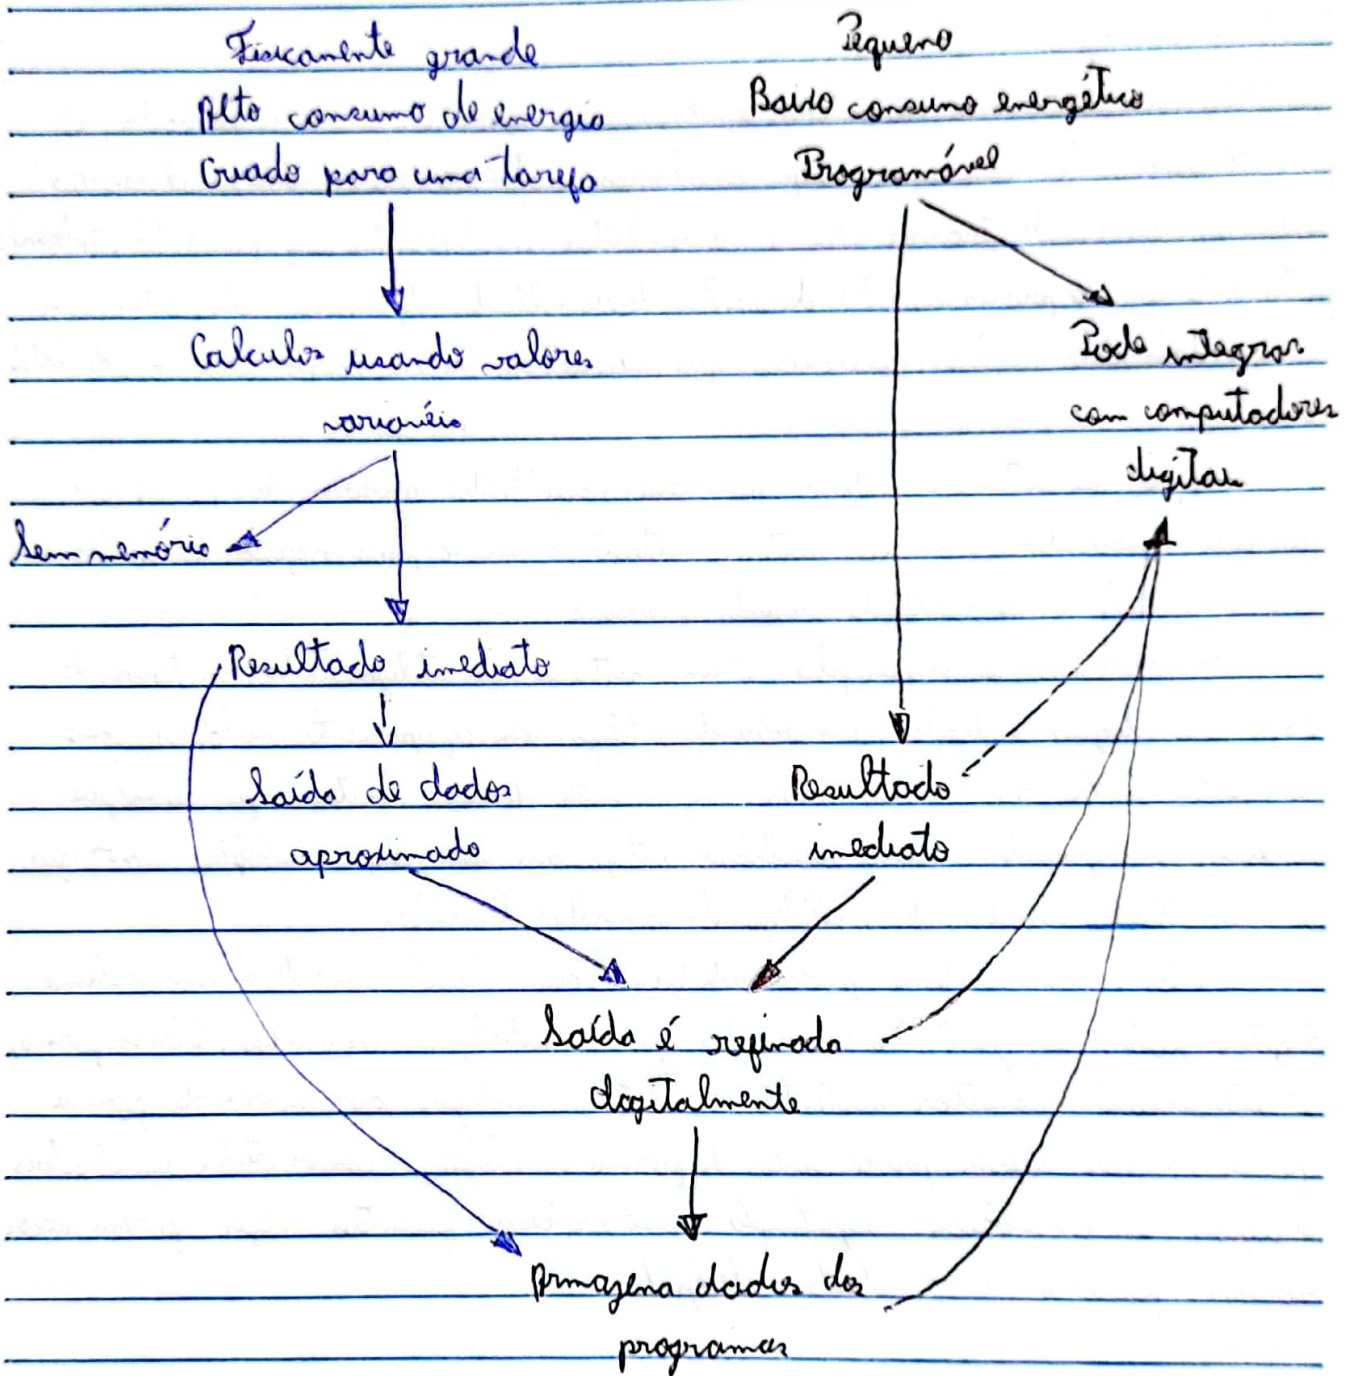 Fisicamente grande
Alto consumo de energia
Criado para uma tarefa
Calculos usando valores
variavéis
Sem memória
Resultado imediato
Saída de dados
aproximado
Pequeno
Baixo consumo energético
Programável
Pode integrar
com computadores
digitais
Resultado
imediato
Saída é refinada
digitalmente
Armazena dados dos
programas